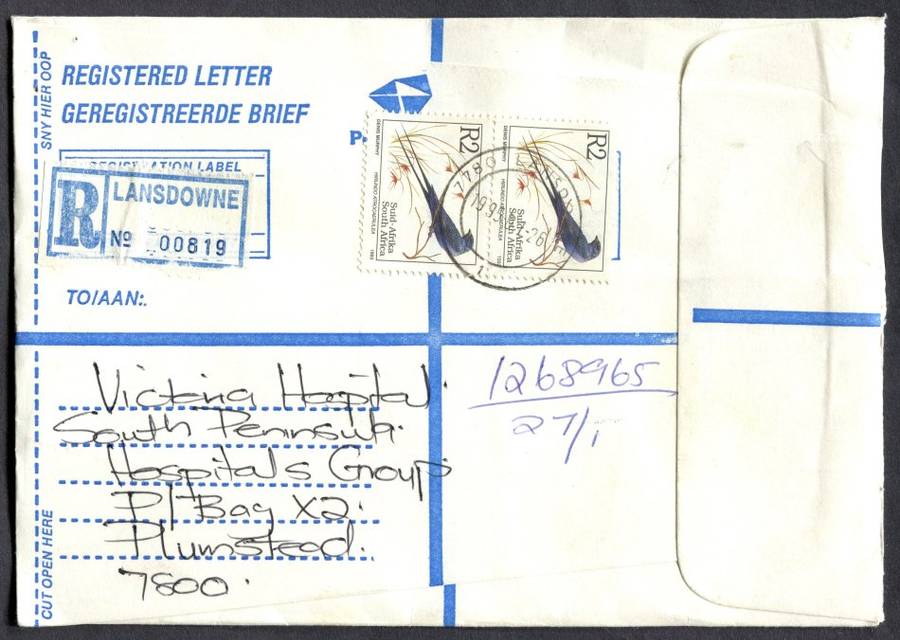 SNY HIER OOP
REGISTERED LETTER
GEREGISTREERDE BRIEF
REGISTRATION LABEL
R LANSDOWNE
No 00819
R2
Suid-Afrika
South Africa
HIRUNDO ATROCAERULEA
1993
R2
Suid-Afrika
South Africa
HIRUNDO ATROCAERULEA
1993
7780
TO/AAN:
Victoria Hospital.
South Peninsula.
Hospital's Group
P/Bag X2.
Plumstead.
7800.
1268965
27/1
CUT OPEN HERE